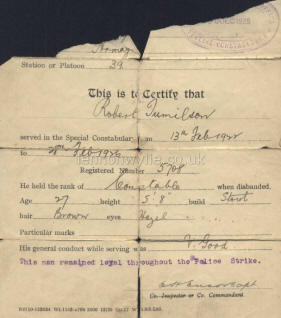 Armagh
Station or Platoon 39.
This is to Certify that
Robert Tumilson
served in the Special Constabulary from 13th Feb 1922
to 28th Feb 1926
Registered Number 5708
He held the rank of Constable when disbanded.
Age 27 height 5' 8" build Stout
hair Brown eyes Hazel
Particular marks
His general conduct while serving was V. Good
This man remained loyal throughout the Police Strike.
Co.-Inspector or Co. Commandant.
lennonwylie.co.uk